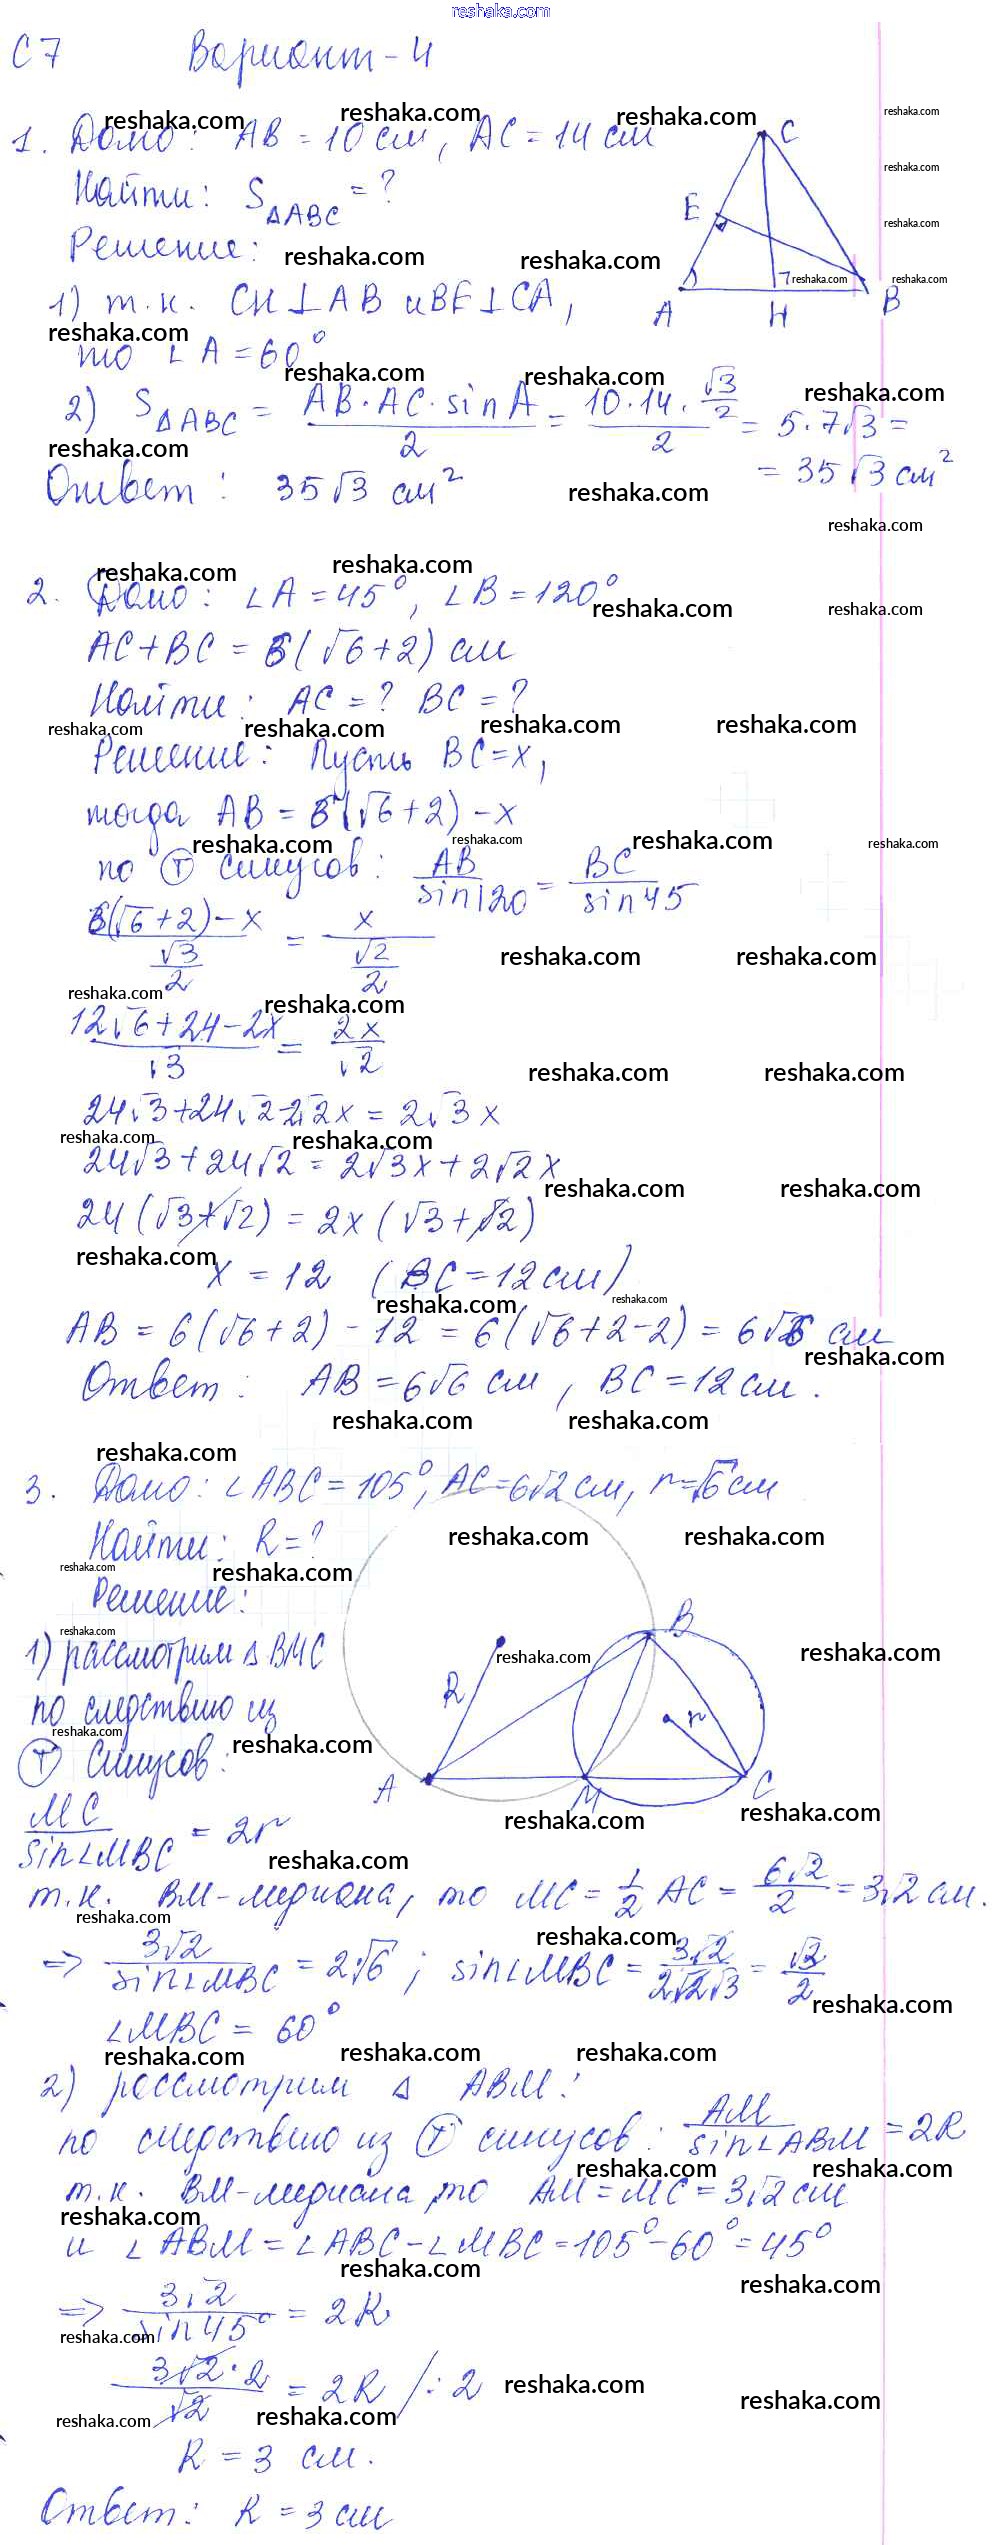 reshaka.com
С7 Вариант-4
1. Дано: AB = 10 см, AC = 14 см
Найти: S△ABC = ?
Решение:
1) т.к. CH ⊥ AB и BE ⊥ CA,
то ∠A = 60°
2) S△ABC = AB·AC·sinA / 2 = 10·14·√3/2 / 2 = 5·7√3 =
= 35√3 см²
Ответ: 35√3 см²
C
E
A H B
2. Дано: ∠A = 45°, ∠B = 120°
AC + BC = 6(√6+2) см
Найти: AC = ? BC = ?
Решение: Пусть BC = x,
тогда AB = 6(√6+2) - x
по Ⓣ синусов: AB/sin120 = BC/sin45
6(√6+2)-x / √3/2 = x / √2/2
12√6+24-2x / √3 = 2x / √2
24√3+24√2-2√2x = 2√3x
24√3+24√2 = 2√3x+2√2x
24(√3+√2) = 2x(√3+√2)
x = 12 (BC = 12 см)
AB = 6(√6+2) - 12 = 6(√6+2-2) = 6√6 см
Ответ: AB = 6√6 см, BC = 12 см.
3. Дано: ∠ABC = 105°, AC = 6√2 см, r = √6 см
Найти: R = ?
Решение:
1) рассмотрим △BMC
по следствию из
Ⓣ синусов:
B
R
r
A M C
MC / sin∠MBC = 2r
т.к. BM-медиана, то MC = 1/2 AC = 6√2/2 = 3√2 см.
=> 3√2 / sin∠MBC = 2√6; sin∠MBC = 3√2 / 2√2√3 = √3/2
∠MBC = 60°
2) рассмотрим △ ABM:
по следствию из Ⓣ синусов: AM / sin∠ABM = 2R
т.к. BM-медиана, то AM = MC = 3√2 см
и ∠ABM = ∠ABC - ∠MBC = 105° - 60° = 45°
=> 3√2 / sin45° = 2R
3√2·2 / √2 = 2R /:2
R = 3 см.
Ответ: R = 3 см